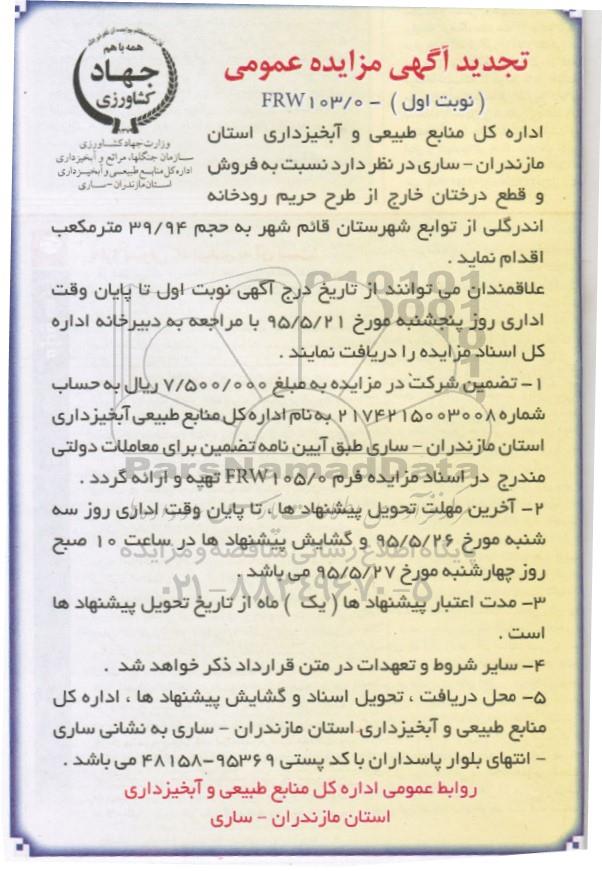 تجدید آگهی مزایده عمومی
( نوبت اول ) - FRW۱۰۳/۰
همه با هم
جهاد
کشاورزی
وزارت جهاد کشاورزی
سازمان جنگلها، مراتع و آبخیزداری
اداره کل منابع طبیعی و آبخیزداری
استان مازندران - ساری
اداره کل منابع طبیعی و آبخیزداری استان
مازندران - ساری در نظر دارد نسبت به فروش
و قطع درختان خارج از طرح حریم رودخانه
اندرگلی از توابع شهرستان قائم شهر به حجم ۳۹/۹۴ مترمکعب
اقدام نماید .
علاقمندان می توانند از تاریخ درج آگهی نوبت اول تا پایان وقت
اداری روز پنجشنبه مورخ ۹۵/۵/۲۱ با مراجعه به دبیرخانه اداره
کل اسناد مزایده را دریافت نمایند .
۱- تضمین شرکت در مزایده به مبلغ ۷/۵۰۰/۰۰۰ ریال به حساب
شماره ۲۱۷۴۲۱۵۰۰۳۰۰۸ به نام اداره کل منابع طبیعی آبخیزداری
استان مازندران - ساری طبق آیین نامه تضمین برای معاملات دولتی
مندرج در اسناد مزایده فرم FRW۱۰۵/۰ تهیه و ارائه گردد .
۲- آخرین مهلت تحویل پیشنهاد ها ، تا پایان وقت اداری روز سه
شنبه مورخ ۹۵/۵/۲۶ و گشایش پیشنهاد ها در ساعت ۱۰ صبح
روز چهارشنبه مورخ ۹۵/۵/۲۷ می باشد .
۳- مدت اعتبار پیشنهاد ها ( یک ) ماه از تاریخ تحویل پیشنهاد ها
است .
۴- سایر شروط و تعهدات در متن قرارداد ذکر خواهد شد .
۵- محل دریافت ، تحویل اسناد و گشایش پیشنهاد ها ، اداره کل
منابع طبیعی و آبخیزداری استان مازندران - ساری به نشانی ساری
- انتهای بلوار پاسداران با کد پستی ۹۵۳۶۹-۴۸۱۵۸ می باشد .
روابط عمومی اداره کل منابع طبیعی و آبخیزداری
استان مازندران - ساری
ParsNamadData
پایگاه اطلاع رسانی مناقصه و مزایده
۰۲۱-۸۸۳۴۹۶۷۰-۵